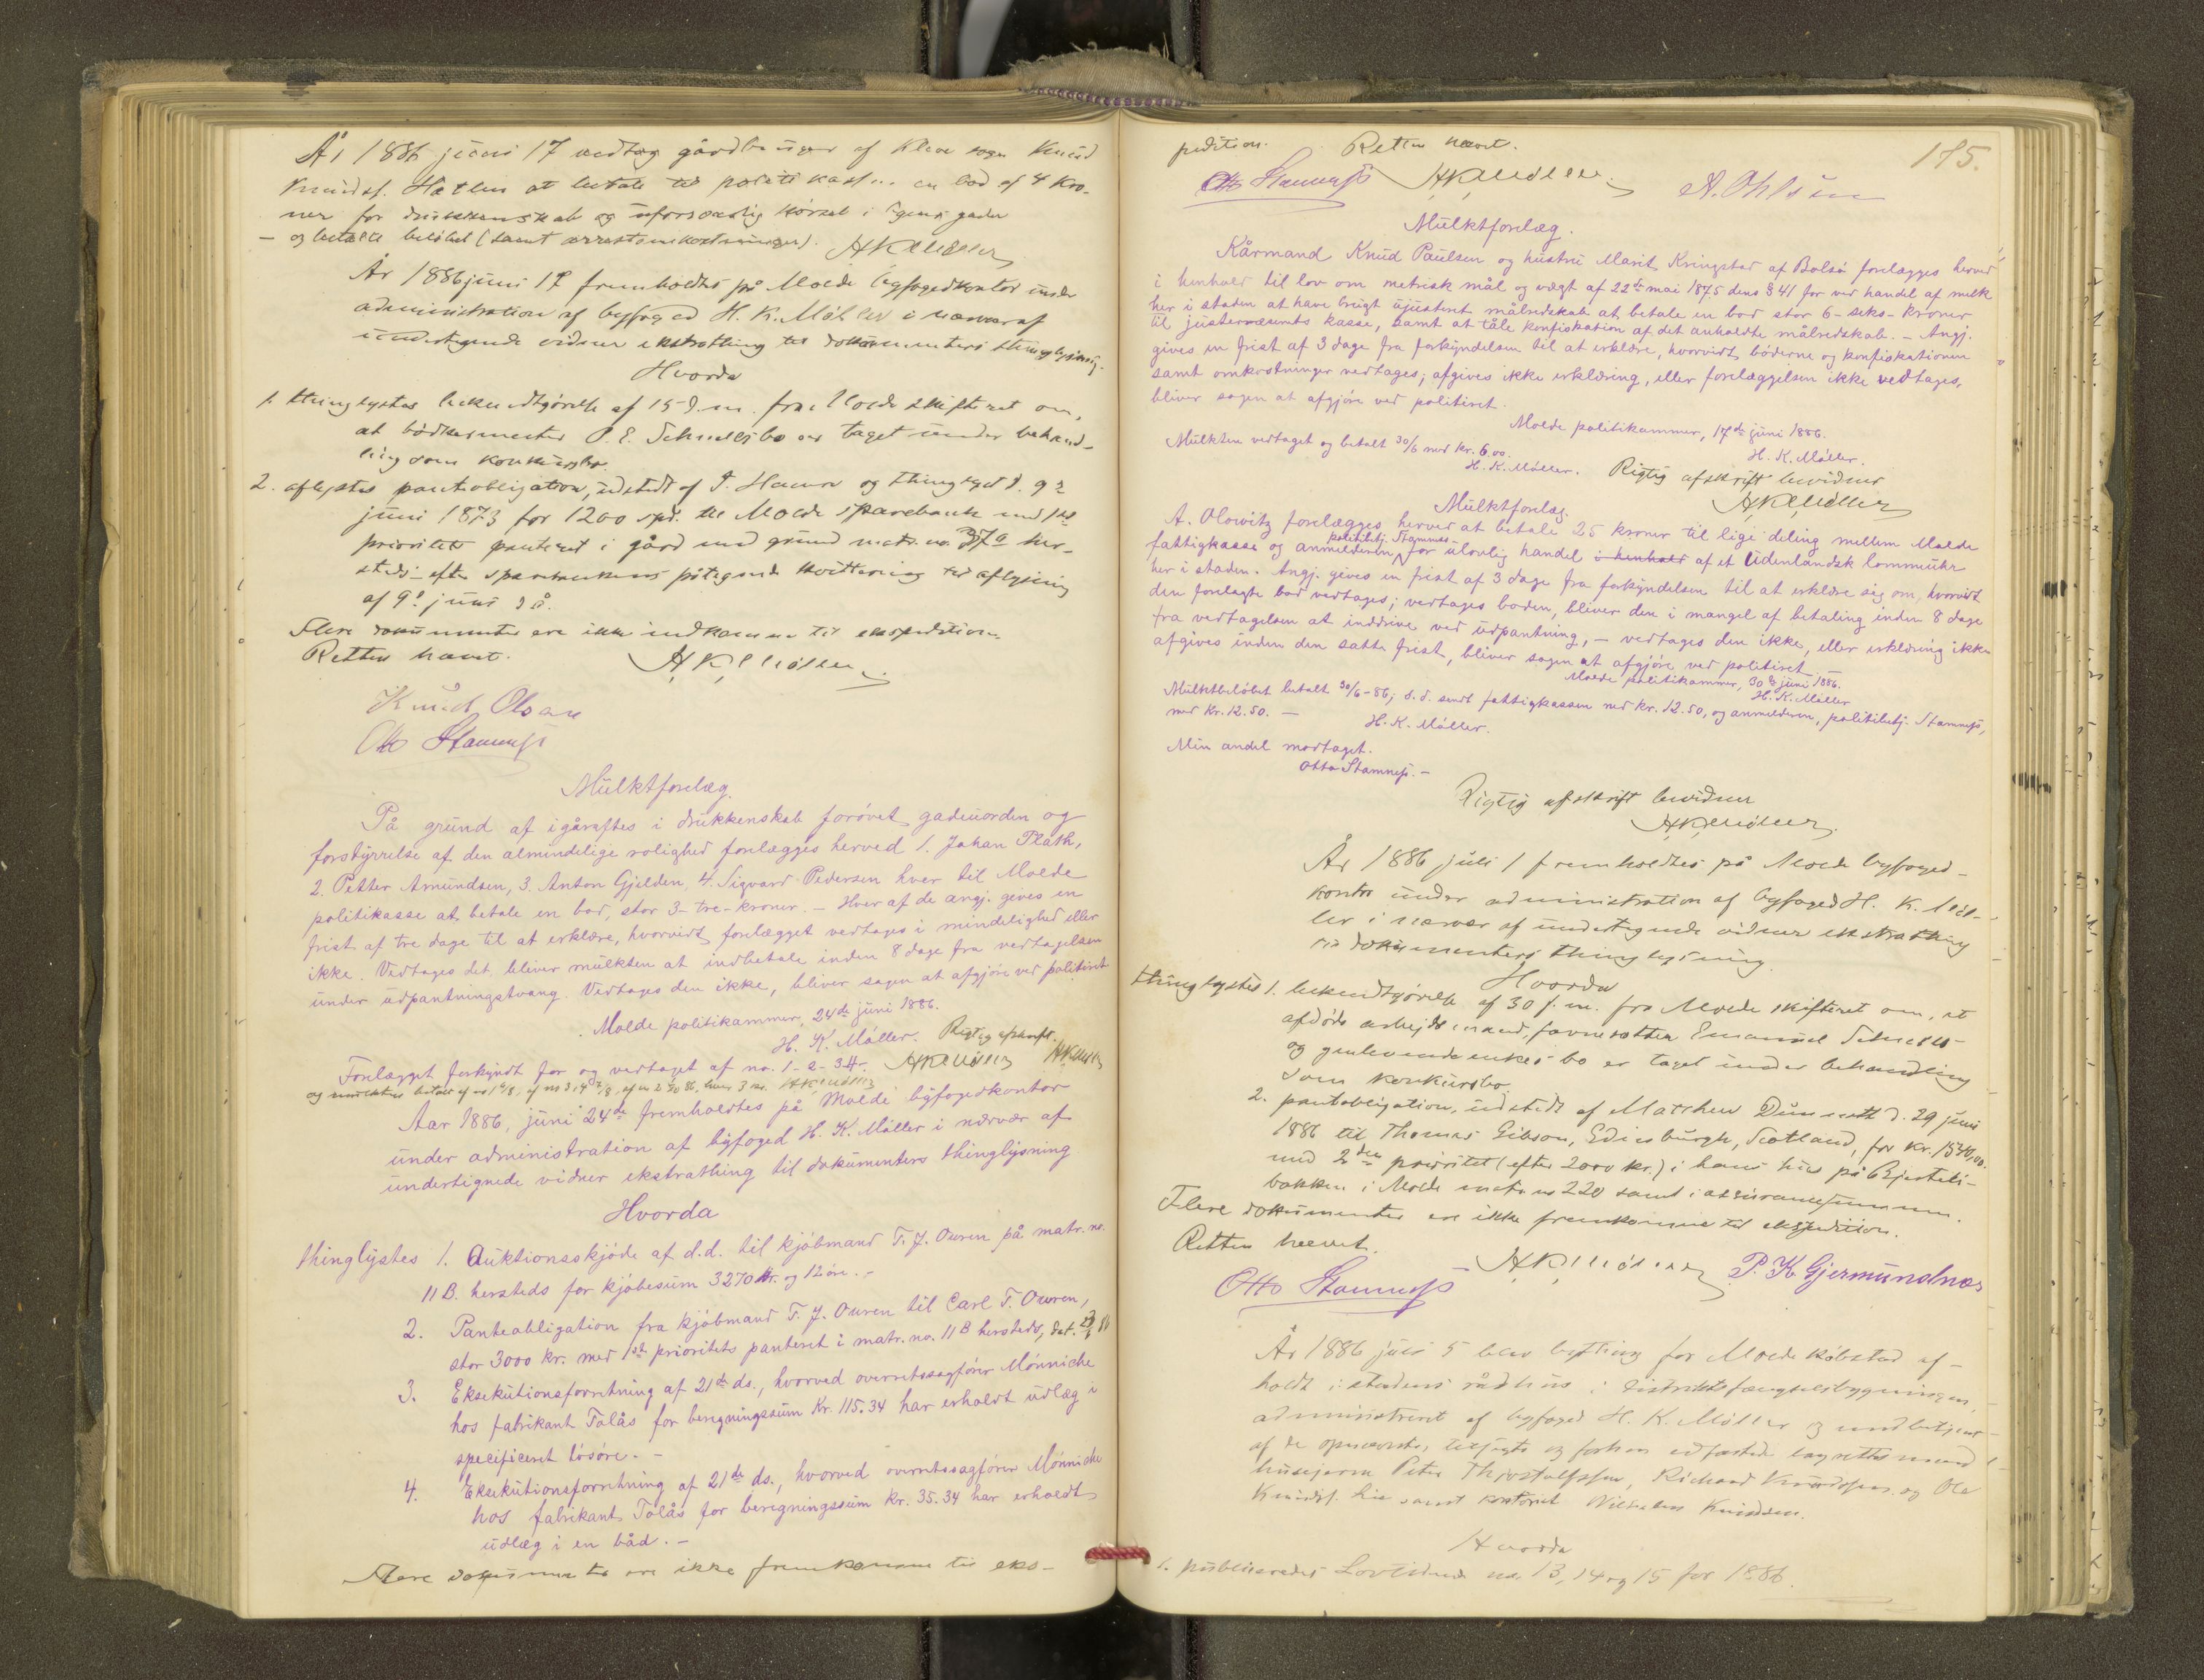 År 1886 juni 17 vedtog gårdbruger af Kleve sogn Knud
Knuds. Hatlen at betale til politikassen en bod af 4 kro-
ner for drukkenskab og uforsvarlig kørsel i byens gader
– og betalte beløbet (samt arrestomkostninger). HKMøller
År 1886 juni 17 fremholdtes på Molde byfogedkontor under
administration af byfoged H. K. Møller i nærvær af
undertegnede vidner ekstrathing til dokumenters thinglysning.
Hvorda
1. thinglystes bekendtgørelse af 15 d.m. fra Molde skifteret om,
at bødkermester P. E. Schnellsbo er taget under behand-
ling som konkursbo.
2. aflystes panteobligation, udstedt af I. Hamre og thinglyst d. 9de
juni 1873 for 1200 spd. til Molde sparebank med 1ste
prioritets panteret i gård med grund matr. no. 37a her-
steds – efter sparebankens påtegnede kvittering til aflysning
af 9de juni d.å.
Flere dokumenter ere ikke indkomne til ekspedition.
Retten hævet. HKMøller
Knud Olsen
Otto Stamnes
Mulktforelæg.
På grund af igåraftes i drukkenskab forøvet gadeuorden og
forstyrrelse af den almindelige rolighed forelægges herved 1. Johan Flath,
2. Petter Amundsen, 3. Anton Gjelden, 4. Sigvard Pedersen hver til Molde
politikasse at betale en bod, stor 3 – tre – kroner. – Hver af de angj. gives en
frist af tre dage til at erklære, hvorvidt forelægget vedtages i mindelighed eller
ikke. Vedtages det, bliver mulkten at indbetale inden 8 dage fra vedtagelsen
under udpantningstvang. Vedtages den ikke, bliver sagen at afgjøre ved politiret
Molde politikammer, 24de juni 1886.
H. K. Møller. Rigtig afskrift.
Forelægget forkyndt for og vedtaget af no. 1-2-3-4. HKMøller HKMøller
og mulkten betalt af no 1 hver 3 kr. HKMøller
Aar 1886, juni 24de fremholdtes på Molde byfogedkontor
under administration af byfoged H. K. Møller i nærvær af
undertignede vidner ekstrathing til dokumenters thinglysning
Hvorda
thinglystes 1. Auktionsskjøde af d.d. til kjøbmand T. J. Owren på matr. no.
11 B. hersteds for kjøbesum 3270 kr. og 12 øre. –
2. Panteobligation fra kjøbmand T. J. Owren til Carl T. Owren,
stor 3000 kr. med 1st prioritets panteret i matr. no. 11 B hersteds, dat.
3. Eksekutionsforretning af 21de ds., hvorved overretssagfører Mönniche
hos fabrikant Tolås for beregningssum Kr. 115.34 har erholdt udlæg i
specificeret løsøre. –
4. Eksekutionsforretning af 21de ds., hvorved overretssagfører Mönniche
hos fabrikant Tolås for beregningssum kr. 35.34 har erholdt
udlæg i en båd. –
Flere dokumenter ere ikke fremkomne til eks-
175.
pedition. Retten hævet.
Otto Stamnes HKMøller A. Ohlsen
Mulktforelæg.
Kårmand Knud Paulsen og hustru Marit Kringstad af Bolsø forelægges herved
i henhold til lov om metrisk mål og vægt af 22de mai 1875 dens § 41 for ved handel af melk
her i staden at have brugt ujusteret målredskab at betale en bod stor 6 – seks – kroner
til justervæsenets kasse, samt at tåle konfiskation af det anholdte målredskab. – Angj.
gives en frist af 3 dage fra forkyndelsen til at erklære, hvorvidt bøderne og konfiskationen
samt omkostninger vedtages; afgives ikke erklæring, eller forelæggelsen ikke vedtages,
bliver sagen at afgjøre ved politiret.
Molde politikammer, 17de juni 1886.
H. K. Møller.
Mulkten vedtaget og betalt 30/6 med kr. 6.00.
H. K. Møller. Rigtig afskrift bevidner
HKMøller
Mulktforelæg.
A. Olowitz forelægges herved at betale 25 kroner til lige deling mellem Molde
fattigkasse og anmelderen politibetj. Stamnes for ulovlig handel i henhold af et udenlandsk lommeuhr
her i staden. Angj. gives en frist af 3 dage fra forkyndelsen til at erklære sig om, hvorvidt
den forelagte bod vedtages; vedtages boden, bliver den i mangel af betaling inden 8 dage
fra vedtagelsen at inddrive ved udpantning, – vedtages den ikke, eller erklæring ikke
afgives inden den satte frist, bliver sagen at afgjøre ved politiret. –
Molde politikammer, 30te juni 1886.
H. K. Møller
Mulktbeløbet betalt 30/6-86; s.d. sendt fattigkassen med kr. 12.50, og anmelderen, politibetj. Stamnes,
med Kr. 12.50. – H. K. Møller.
Min andel modtaget.
Otto Stamnes. –
Rigtig afskrift bevidner
HKMøller
År 1886 juli 1 fremholdtes på Molde byfoged-
kontor under administration af byfoged H. K. Møl-
ler i nærvær af undertegnede vidner ekstrathing
til dokumenters thinglysning.
Hvorda
thinglystes 1. bekendtgørelse af 30 f.m. fra Molde skifteret om, at
afdøde arbejdsmand, favnesætter Emanuel
og gjenlevende enkes bo er taget under behandling
som konkursbo.
2. pantobligation, udstedt af Matthew d. 29 juni
1886 til Thomas Gibson, Edinburgh, Scotland, for kr. 1540,00.
med 2den prioritet (efter 2000 kr.) i hans hus på
bakken i Molde matr. no 220 samt i assurancesummen.
Flere dokumenter ere ikke fremkomne til ekspedition.
Retten hævet.
Otto Stamnes HKMøller P. K. Gjermundnæs
År 1886 juli 5 blev bything for Molde købstad af-
holdt i stadens rådhus i distriktsfængselsbygningen,
administreret af byfoged H. K. Møller og medbetjent
af de opnævnte, tilsagte og forhen edfæstede lagrettesmænd
husejerne Peter Thjostolfsen, Richard Knudssen og Ole
Knuds. Lie samt kontorist Wilhelm Knudsen.
Hvorda
1. publiceredes Lovtidende no. 13, 14 og 15 for 1886.